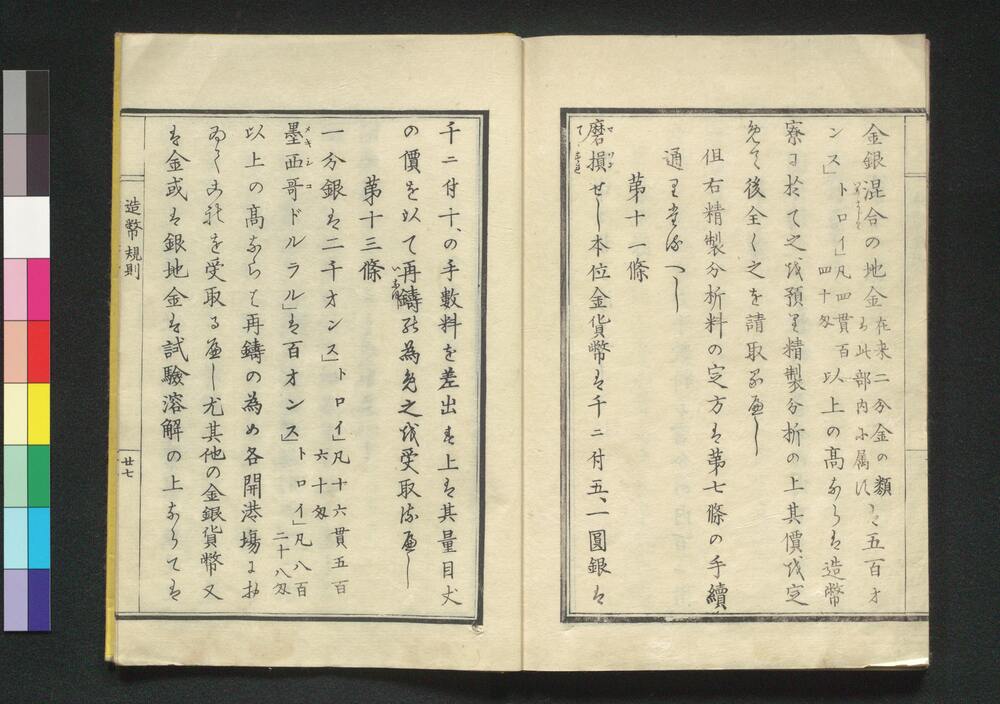 金銀混合の地金在来二分金の類ハ五百オ
ハ此部内ニ属ス
ンス」トロイ」凡四貫百
四十匁
以上の高ならハ造幣
寮ニ於て之を預り精製分析の上其価を定
め後全く之を請取るべし
但右精製分析料の定方ハ第七條の手續
通りたるべし
第十一條
磨損せし本位金貨幣ハ千ニ付五、一圓銀ハ
千ニ付十、の手數料を差出す上ハ其量目丈
の價を以て再鑄の為め之を受取るべし
第十三條
一分銀ハ二千オンス」トロイ」凡十六貫五百
六十匁
墨西哥ドルラル」ハ百オンス」トロイ」凡八百
二十八匁
メキシコ
以上の高ならハ再鑄の為め各開港場ニ於
を受取るべし尤其他の金銀貨幣又
ハ金或ハ銀地金ハ試驗溶解の上ならてハ
造幣規則
廿七